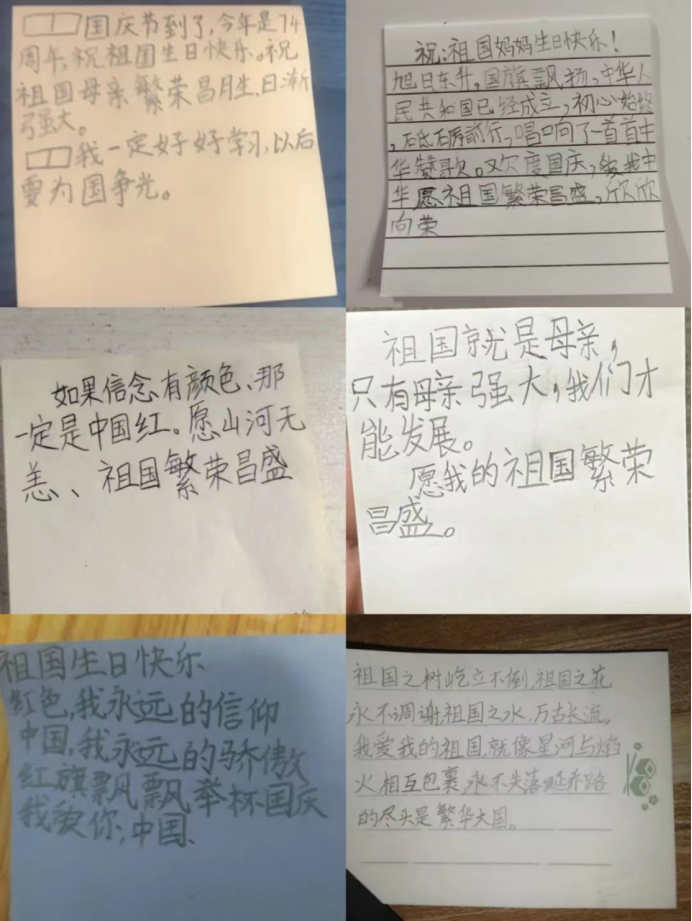 国庆节到了,今年是74
周年,祝祖国生日快乐。祝
祖国母亲繁荣昌盛、日渐
强大。
我一定好好学习,以后
要为国争光。
祝:祖国妈妈生日快乐!
旭日东升,国旗飘扬,中华人
民共和国已经成立,初心始终
,砥砺前行,唱响了一首首中
华赞歌。又欢度国庆,我中
华愿祖国繁荣昌盛,欣欣
向荣
如果信念有颜色、那
一定是中国红。愿山河无
恙、祖国繁荣昌盛
祖国就是母亲,
只有母亲强大,我们才
能发展。
愿我的祖国繁荣
昌盛。
祖国生日快乐
红色,我永远的信仰
中国,我永远的骄傲
红旗飘飘举杯国庆
我爱你,中国.
祖国之树屹立不倒,祖国之花
永不凋谢,祖国之水,万古长流。
我爱我的祖国,就像星河与焰
火相互包裹,永不失落,延乔路
的尽头是繁华大国。